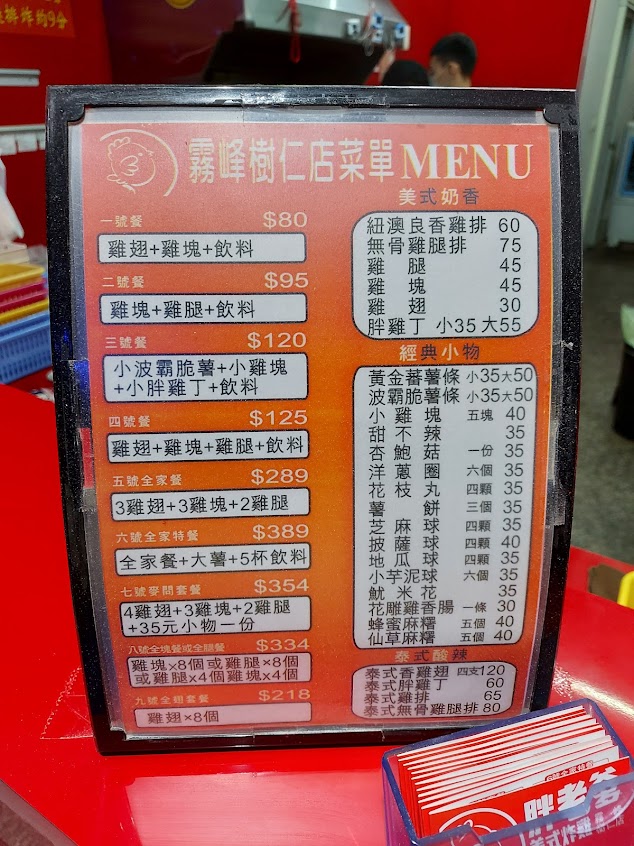 排炸約9分
霧峰樹仁店菜單 MENU
一號餐 $80
雞翅+雞塊+飲料
二號餐 $95
雞塊+雞腿+飲料
三號餐 $120
小波霸脆薯+小雞塊
+小胖雞丁+飲料
四號餐 $125
雞翅+雞塊+雞腿+飲料
五號全家餐 $289
3雞翅+3雞塊+2雞腿
六號全家特餐 $389
全家餐+大薯+5杯飲料
七號套餐 $354
4雞翅+3雞塊+2雞腿
+35元小物一份
八號全塊餐或全腿餐 $334
雞塊×8個或雞腿×8個
或雞腿×4個雞塊×4個
九號全翅套餐 $218
雞翅×8個
美式奶香
紐澳良香雞排 60
無骨雞腿排 75
雞腿 45
雞塊 45
雞翅 30
胖雞丁 小35大55
經典小物
黃金蕃薯條 小35大50
波霸脆薯條 小35大50
小雞塊 五塊 40
甜不辣 35
杏鮑菇 一份 35
洋蔥圈 六個 35
花枝丸 四顆 35
薯餅 三個 35
芝麻球 四顆 35
披薩球 四顆 40
地瓜球 四顆 35
小芋泥球 六個 35
魷米花 35
花雕雞香腸 一條 30
蜂蜜麻糬 五個 40
仙草麻糬 五個 40
泰式酸辣
泰式香雞翅 四支120
泰式胖雞丁 60
泰式雞排 65
泰式無骨雞腿排 80
胖老爹
美式炸雞 樹仁店